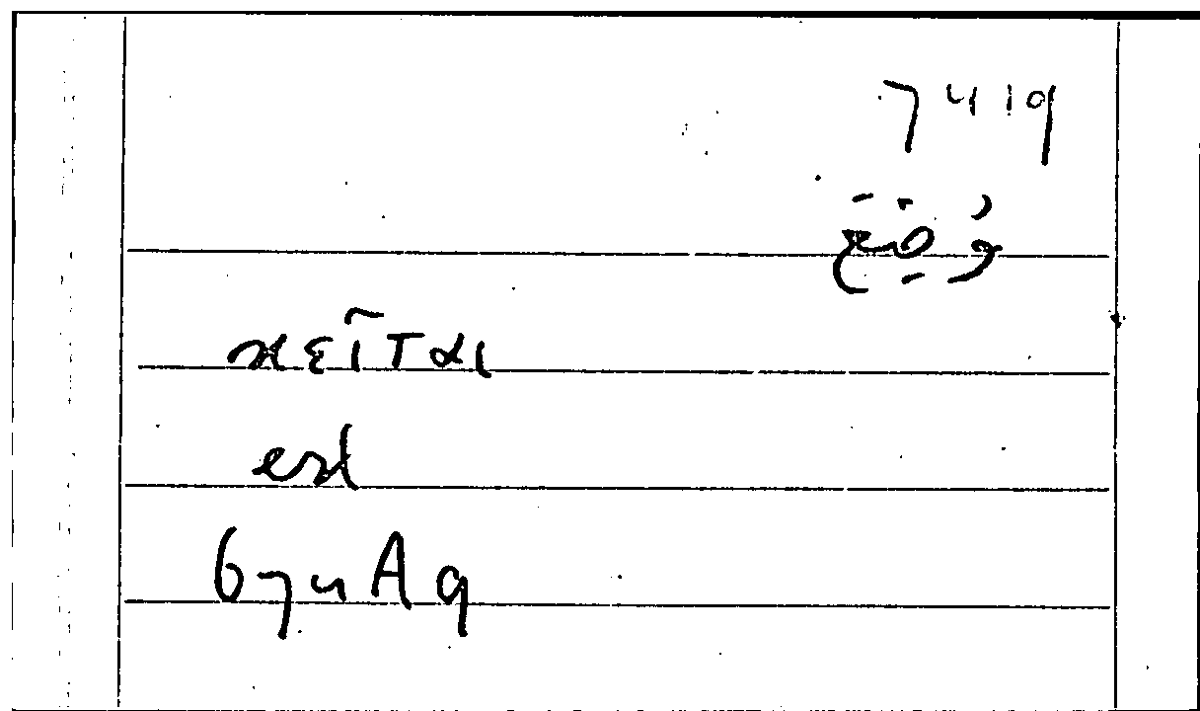 7419
وُضِعَ
κεῖται
674A9